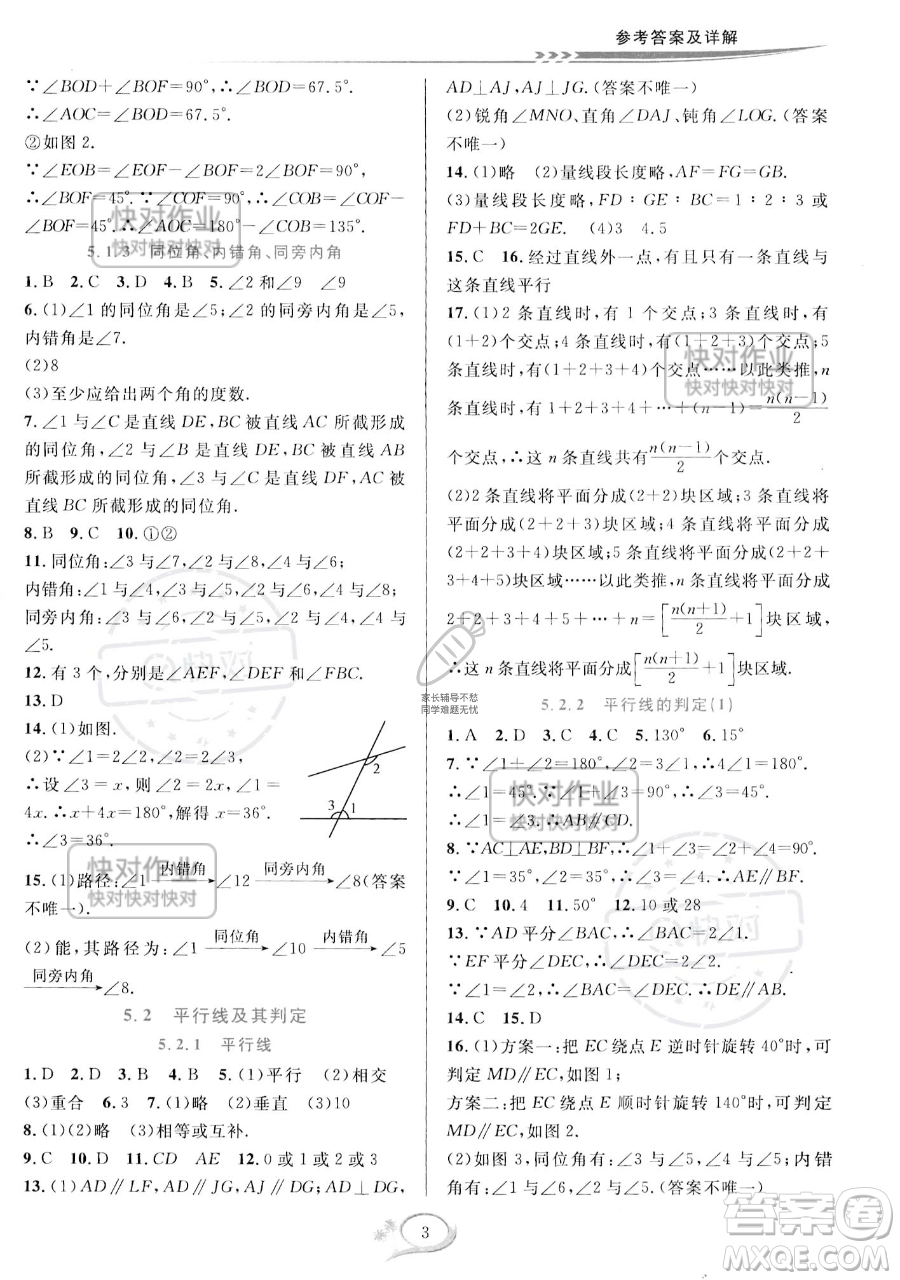 参考答案及详解
∵∠BOD+∠BOF=90°,∴∠BOD=67.5°.
∴∠AOC=∠BOD=67.5°.
②如图2.
∵∠EOB=∠EOF-∠BOF=2∠BOF=90°,
∴∠BOF=45°.∵∠COF=90°,∴∠COB=∠COF+
∠BOF=45°.∴∠AOC=180°-∠COB=135°.
5.1.3 同位角、内错角、同旁内角
1.B 2.C 3.D 4.B 5.∠2和∠9 ∠9
6.(1)∠1的同位角是∠5;∠2的同旁内角是∠5,
内错角是∠7.
(2)8
(3)至少应给出两个角的度数.
7.∠1与∠C是直线DE,BC被直线AC所截形成
的同位角,∠2与∠B是直线DE,BC被直线AB
所截形成的同位角,∠3与∠C是直线DF,AC被
直线BC所截形成的同位角.
8.B 9.C 10.①②
11.同位角:∠3与∠7,∠2与∠8,∠4与∠6;
内错角:∠1与∠4,∠3与∠5,∠2与∠6,∠4与∠8;
同旁内角:∠3与∠6,∠2与∠5,∠2与∠4,∠4与
∠5.
12.有3个,分别是∠AEF,∠DEF和∠FBC.
13.D
14.(1)如图.
(2)∵∠1=2∠2,∠2=2∠3,
∴设∠3=x,则∠2=2x,∠1=
4x.∴x+4x=180°,解得x=36°.
∴∠3=36°.
2
3 1
15.(1)路径:∠1 内错角 ∠12 同旁内角 ∠8(答案
不唯一).
(2)能,其路径为:∠1 同位角 ∠10 内错角 ∠5
同旁内角 ∠8.
5.2 平行线及其判定
5.2.1 平行线
1.D 2.B 3.B 4.A 5.(1)平行 (2)相交
(3)重合 6.3 7.(1)略 (2)垂直 (3)10
8.(1)(2)略 (3)相等或互补.
9.C 10.D 11.CD AE 12.0或1或2或3
13.(1)AD∥LF,AD∥DG,AJ∥DG;AD⊥DG,
AD⊥AJ,AJ⊥JG.(答案不唯一)
(2)锐角∠MNO、直角∠DAJ、钝角∠LOG.(答案
不唯一)
14.(1)略 (2)量线段长度略,AF=FG=GB.
(3)量线段长度略,FD∶GE∶BC=1∶2∶3或
FD+BC=2GE. (4)3 4.5
15.C 16.经过直线外一点,有且只有一条直线与
这条直线平行
17.(1)2条直线时,有1个交点;3条直线时,有
(1+2)个交点;4条直线时,有(1+2+3)个交点;5
条直线时,有(1+2+3+4)个交点……以此类推,n
条直线时,有1+2+3+4+…+(n-1)=n(n-1)/2
个交点,∴这n条直线共有n(n-1)/2个交点.
(2)2条直线将平面分成(2+2)块区域;3条直线将
平面分成(2+2+3)块区域;4条直线将平面分成
(2+2+3+4)块区域;5条直线将平面分成(2+2+
3+4+5)块区域……以此类推,n条直线将平面分成
2+2+3+4+5+…+n=[n(n+1)/2+1]块区域,
∴这n条直线将平面分成[n(n+1)/2+1]块区域.
5.2.2 平行线的判定(1)
1.A 2.D 3.C 4.C 5.130° 6.15°
7.∵∠1+∠2=180°,∠2=3∠1,
∴∠1=45°.∵∠1+∠3=90°,
∴∠3=45°.∴∠1=∠3.∴AB∥CD.
8.∵AC⊥AE,BD⊥BF,∴∠EAC=∠FBD=90°.
∵∠1=∠2,∴∠EAB=∠FBG.∴AE∥BF.
9.C 10.4 11.50° 12.10或28
13.∵AD平分∠BAC,∴∠BAC=2∠1.
∵EF平分∠DEC,∴∠DEC=2∠2.
∵∠1=∠2,∴∠BAC=∠DEC.∴DE∥AB.
14.C 15.D
16.(1)方案一:把EC绕点E逆时针旋转40°时,可
判定MD∥EC,如图1;
方案二:把EC绕点E顺时针旋转140°时,可判定
MD∥EC,如图2.
(2)如图3,同位角有:∠1与∠5,∠2与∠6;内错
角有:∠4与∠5,∠3与∠6.(答案不唯一)
3
快对作业
快对快对快对
快对作业
快对快对快对
快对作业
快对快对快对
快对作业
快对快对快对
快对
家长辅导不愁
同学难题无忧
答案卷
MXQE.COM